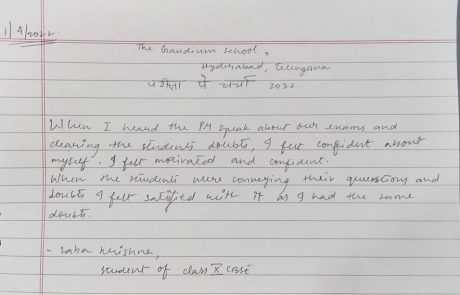 1/4/2022
The Gaudium School,
Hyderabad, Telengana
परीक्षा पे चर्चा 2022
When I heard the PM speak about our exams and
clearing the students doubts, I felt confident about
myself. I felt motivated and confident.
When the students were conveying their questions and
doubts I felt satisfied with it as I had the same
doubts.
- Krishna,
student of class X CBSE